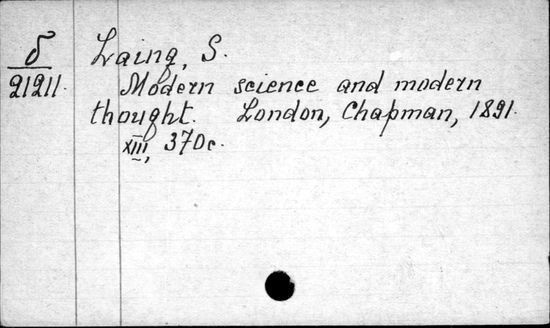 б
21211.
Laing, S.
Modern science and modern
thought. London, Chapman, 1891.
XIII, 370c.